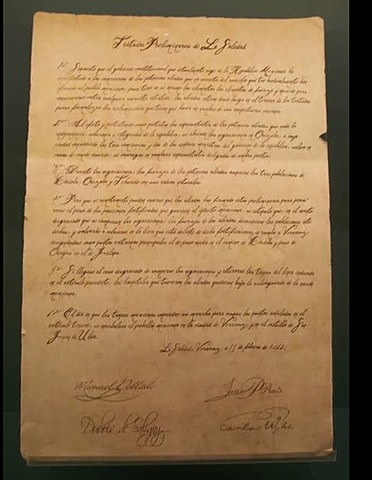 Tratados Preliminares de La Soledad
1º Supuesto que el gobierno constitucional que actualmente rige en la República Mexicana ha
manifestado a los comisarios de las potencias aliadas que no necesita del auxilio que tan benévolamente han
ofrecido al pueblo mexicano, pues tiene en sí mismo los elementos de fuerza y opinión para
conservarse contra cualquier revuelta intestina, los aliados entran desde luego en el terreno de los tratados
para formalizar las reclamaciones que tienen que hacer en nombre de sus respectivas naciones.
2º Al efecto y protestando como protestan los representantes de las potencias aliadas que nada
independencia, soberanía e integridad de la república, se abrirán las negociaciones en Orizaba, a cuya
ciudad concurrirán los tres comisarios y dos de los señores ministros del gobierno de la república, salvo en
caso de mutuo convenio, se nombren representantes delegados de ambas partes.
3º Durante las negociaciones, las fuerzas de las potencias aliadas ocuparán las tres poblaciones de
Córdoba, Orizaba y Tehuacán con sus radios naturales.
4º Para que ni remotamente pueda creerse que los aliados han firmado estos preliminares para
el paso de las posiciones fortificadas que guarnece el ejército mexicano, se estipula que, en el evento
desgraciado que se rompiesen las negociaciones, las fuerzas de los aliados desocuparán las poblaciones
dichas, y volverán a colocarse en la línea que está delante de dichas fortificaciones, en rumbo a Veracruz,
el de paso ancho en el camino de Córdoba y paso de
Ovejas en el de Jalapa.
5º Si llegase el caso desgraciado de romperse las negociaciones y retirarse las tropas
artículo precedente, los hospitales que tuvieren los aliados quedarán bajo la salvaguardia de la nación
mexicana.
6º El día en que las tropas emprendan su marcha para ocupar los puntos señalados en el
artículo tercero, se enarbolará el pabellón mexicano en la ciudad de Veracruz y en el castillo de San
Juan de Ulúa.
La Soledad, Veracruz, a 19 de febrero de 1862.
Manuel Doblado Juan Prim
Dubois de Saligny Charles Wyke